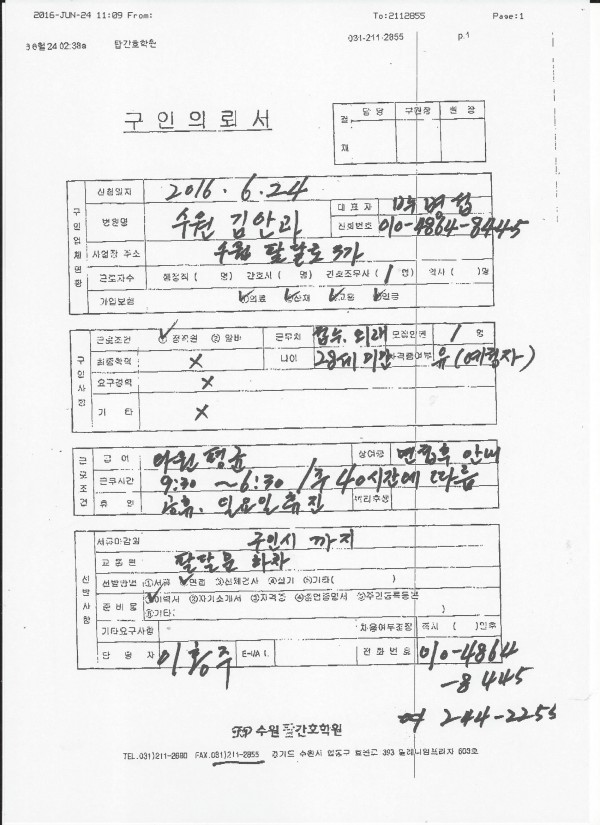 2016-JUN-24 11:09 From: To:2112855 Page:1
6월 24 02:38a 탑간호학원 031-211-2855 p.1
구인의뢰서
결재 담당 구원장 원장
구인업체현황
신청일자 2016. 6. 24
병원명 수원 김안과 대표자
전화번호 010-4864-8445
사업장 주소 수원 팔달로 3가
근로자수 행정직 ( 명) 간호사 ( 명) 간호조무사 ( 1 명) 약사 ( )명
가입보험 ①의료 ②산재 ③고용 ④연금
구인사항
근로조건 ① 정직원 ② 알바 근무처 접수. 외래 모집인원 1 명
최종학력 X 나이 28세 미만 자격증여부 유 (예정자)
요구경력 X
기 타 X
근로조건
급 여 차원 평균 상여금 면접후 안내
근무시간 9:30 ~ 6:30 / 주 40시간에 따름
휴 일 공휴. 일요일 휴진
선발사항
서류마감일 구인시 까지
교통편 팔달문 하차
선발방법 ①서류 ②면접 ③신체검사 ④실기 ⑤기타( )
준 비 물 ①이력서 ②자기소개서 ③자격증 ④졸업증명서 ⑤주민등록등본
⑥기타: )
기타요구사항 채용여부조정 즉시 ( )인후
담 당 자 이황주 E-MAIL 전화번호 010-4864
-8445
244-2255
TOP 수원 탑간호학원
TEL.031)211-2880 FAX.031)211-2855 경기도 수원시 393 밀레니엄프라자 603호